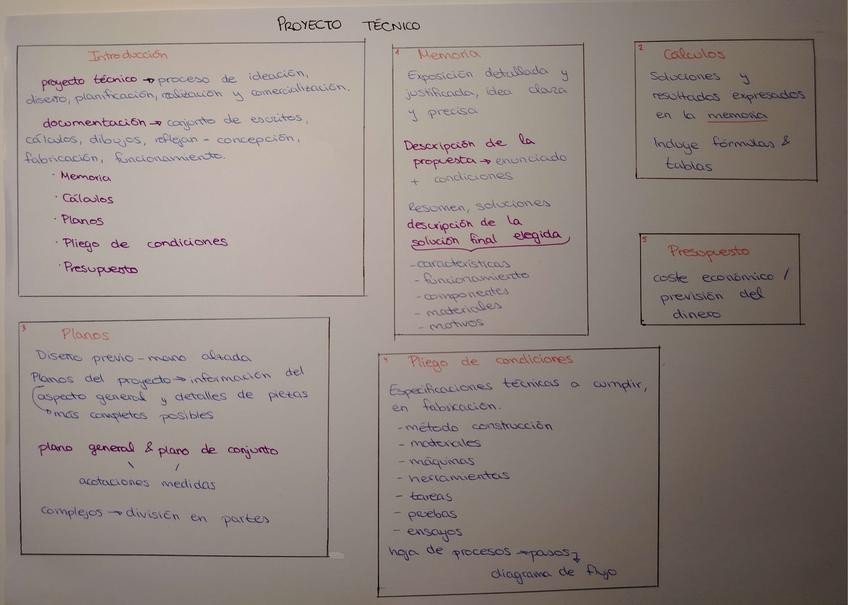 PROYECTO TÉCNICO
Introducción
proyecto técnico → proceso de ideación,
diseño, planificación, realización y comercialización.
documentación → conjunto de escritos,
cálculos, dibujos, reflejan - concepción,
fabricación, funcionamiento.
· Memoria
· Cálculos
· Planos
· Pliego de condiciones
· Presupuesto
1 Memoria
Exposición detallada y
justificada, idea clara
y precisa
Descripción de la
propuesta → enunciado
+ condiciones
Resumen, soluciones
descripción de la
solución final elegida
- características
- funcionamiento
- componentes
- materiales
- motivos
2 Cálculos
Soluciones y
resultados expresados
en la memoria
Incluye fórmulas &
tablas
3 Planos
Diseño previo - mano alzada
Planos del proyecto → información del
aspecto general y detalles de piezas
más completos posibles
plano general & plano de conjunto
acotaciones medidas
complejos → división en partes
4 Pliego de condiciones
Especificaciones técnicas a cumplir,
en fabricación.
- método construcción
- materiales
- máquinas
- herramientas
- tareas
- pruebas
- ensayos
hoja de procesos → pasos
diagrama de flujo
5 Presupuesto
coste económico /
previsión del
dinero